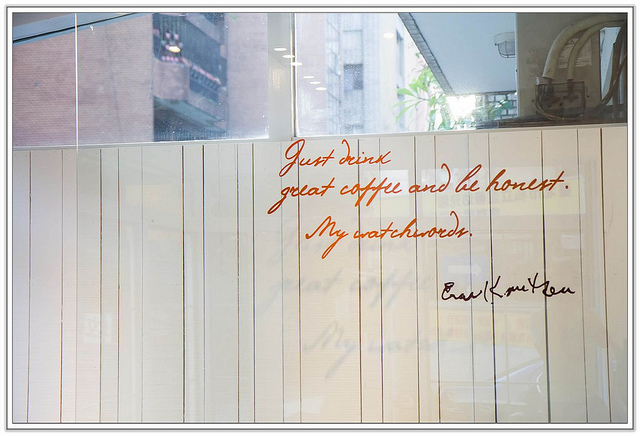 Just drink
great coffee and be honest.
My watchwords.